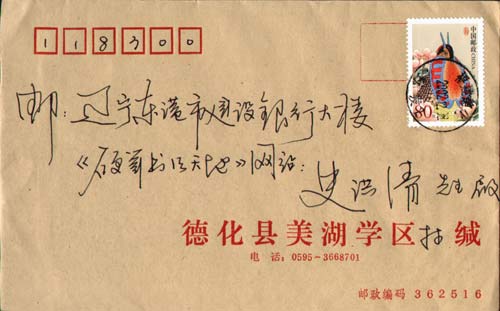 118300
中国邮政 CHINA
80分
邮：辽宁东港市建设銀行大楼
《硬笔书法天地》网站：
史洪清 先生 啟
德化县美湖学区 缄
电话：0595-3668701
邮政编码 362516